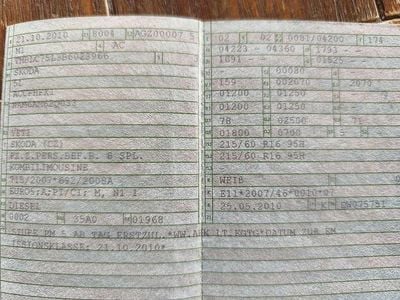 21.10.2010 8004 AGZ00007 5
N1 AC
SKODA
5L
YETI
SKODA (CZ)
FZ.Z.PERS.BEF.B. 8 SPL.
KOMBILIMOUSINE
715/2007*692/2008A
EURO5;A;PI/CI; M, N1 I
DIESEL
0002 35A0 01968
STUFE PM 5 AB TAG ERSTZUL.*WW.AHK LT.EGTG*DATUM ZUR EM
ISSIONSKLASSE: 21.10.2010*
02 02 0081/04200 174
04223 - 04360 1793 - --
1691 - -- 01525 - --
- 00080 - -
159 02070 2070
01200 01250 - -
01200 01250 - -
78 02500 71
01800 0700 5 -
215/60 R16 95H
215/60 R16 95H
- -
WEIß
E11*2007/46*0010*07
25.05.2010 K